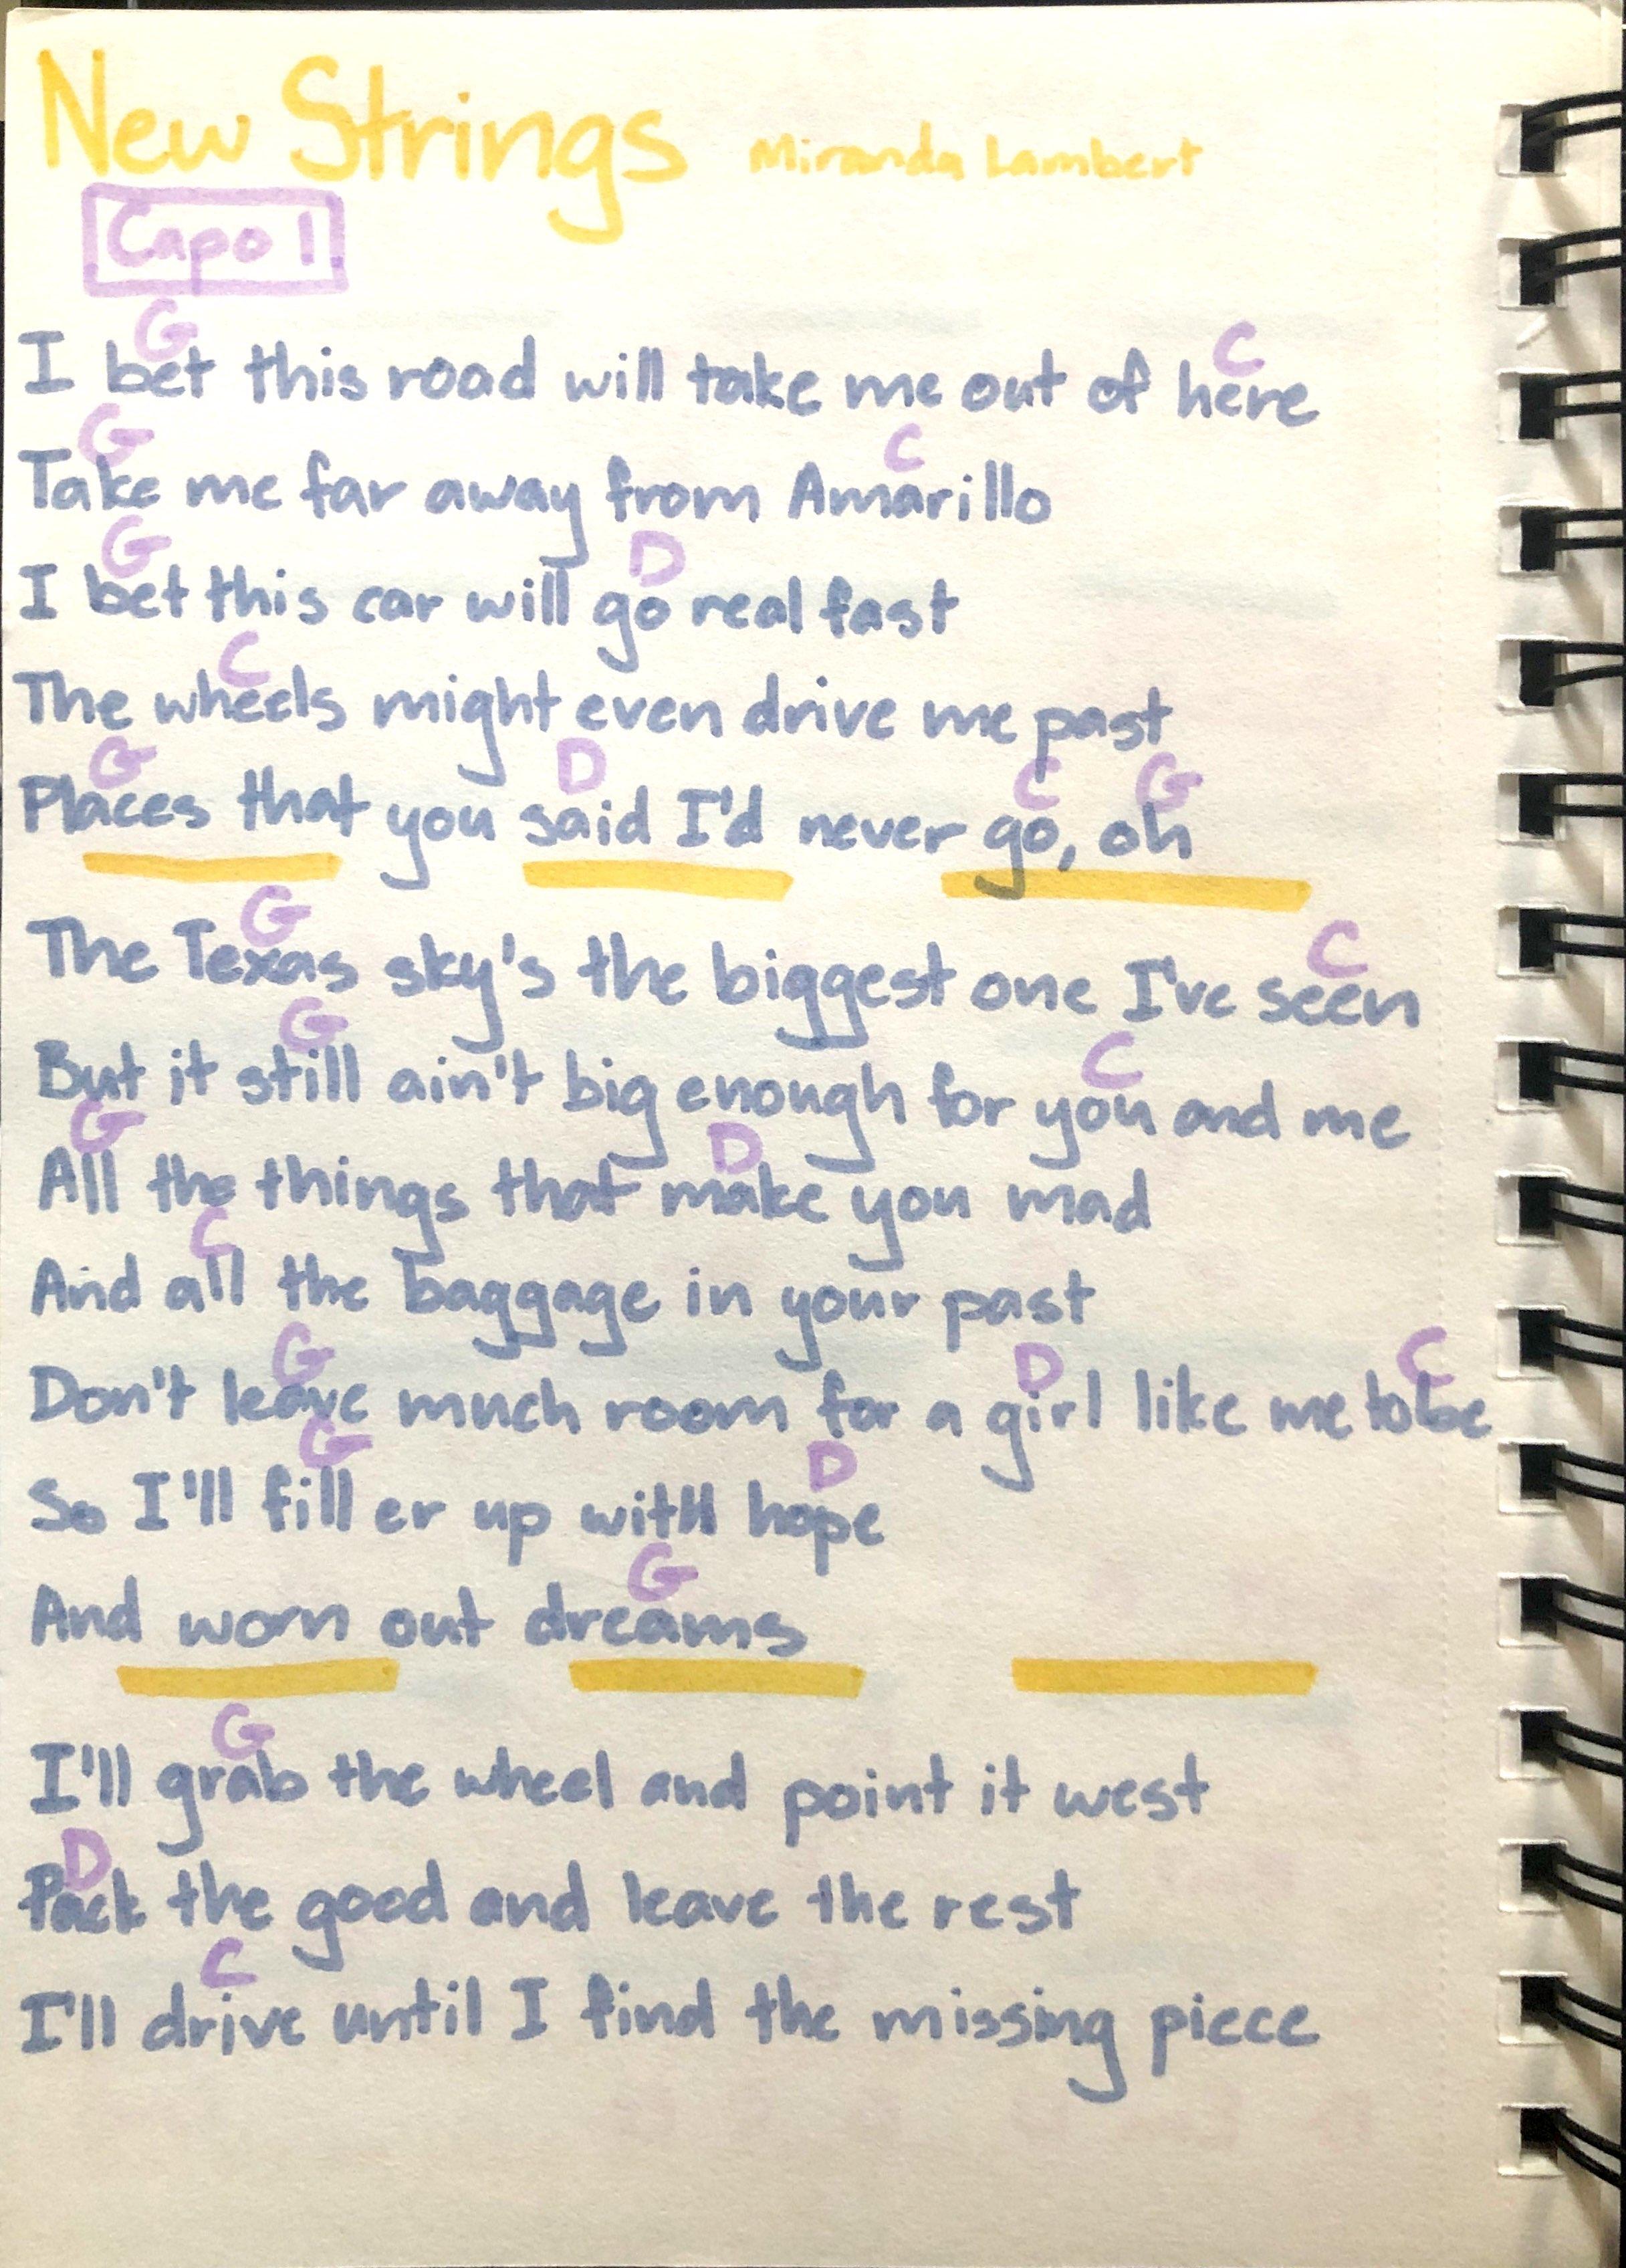 New Strings Miranda Lambert
Capo 1
G C
I bet this road will take me out of here
G C
Take me far away from Amarillo
G D
I bet this car will go real fast
C
The wheels might even drive me past
G D C G
Places that you said I'd never go, oh
G C
The Texas sky's the biggest one I've seen
G C
But it still ain't big enough for you and me
G D
All the things that make you mad
C
And all the baggage in your past
G D C
Don't leave much room for a girl like me to be
G D
So I'll fill er up with hope
G
And worn out dreams
G
I'll grab the wheel and point it west
D
Pack the good and leave the rest
C
I'll drive until I find the missing piece